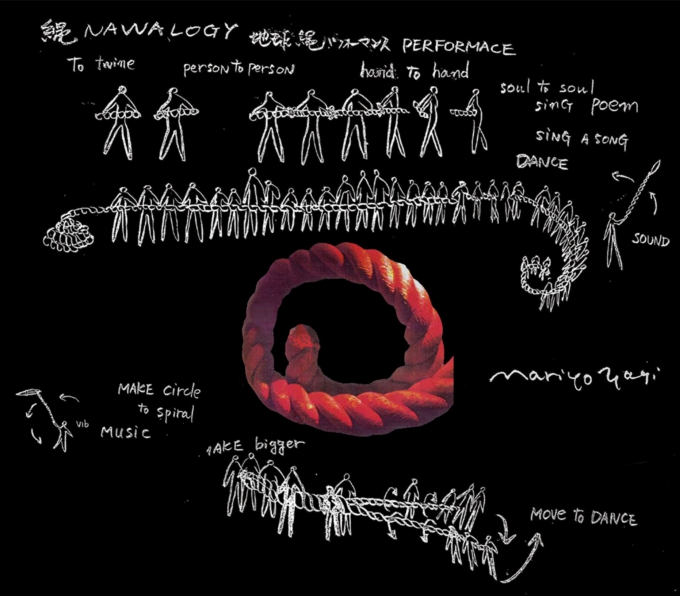 縄 NAWALOGY 地球縄パフォーマンス PERFORMACE
To twine
person to person
hand to hand
soul to soul
sing poem
SING A SONG
DANCE
SOUND
mariyo yagi
MAKE circle
to spiral
vib MUSIC
MAKE bigger
MOVE to DANCE